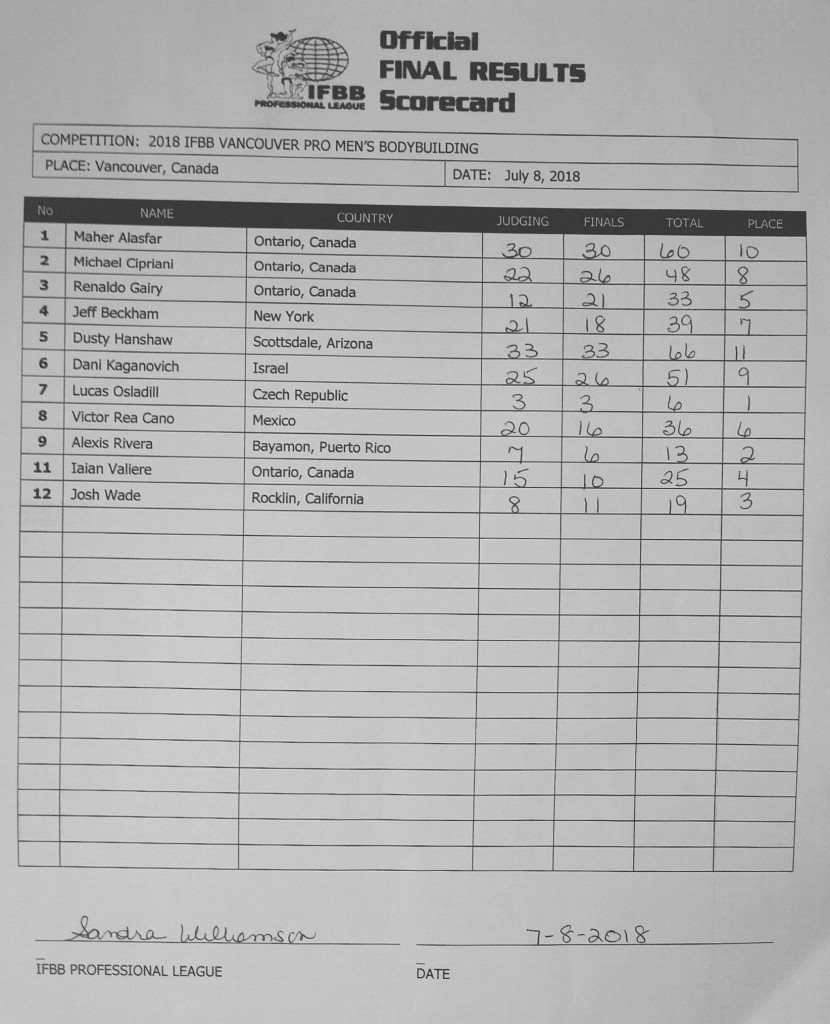 Official
FINAL RESULTS
Scorecard
IFBB
PROFESSIONAL LEAGUE
COMPETITION: 2018 IFBB VANCOUVER PRO MEN'S BODYBUILDING
PLACE: Vancouver, Canada DATE: July 8, 2018
No NAME COUNTRY JUDGING FINALS TOTAL PLACE
1 Maher Alasfar Ontario, Canada 30 30 60 10
2 Michael Cipriani Ontario, Canada 22 26 48 8
3 Renaldo Gairy Ontario, Canada 12 21 33 5
4 Jeff Beckham New York 21 18 39 7
5 Dusty Hanshaw Scottsdale, Arizona 33 33 66 11
6 Dani Kaganovich Israel 25 26 51 9
7 Lucas Osladill Czech Republic 3 3 6 1
8 Victor Rea Cano Mexico 20 16 36 6
9 Alexis Rivera Bayamon, Puerto Rico 7 6 13 2
11 Iaian Valiere Ontario, Canada 15 10 25 4
12 Josh Wade Rocklin, California 8 11 19 3
Sandra Williamson 7-8-2018
IFBB PROFESSIONAL LEAGUE DATE